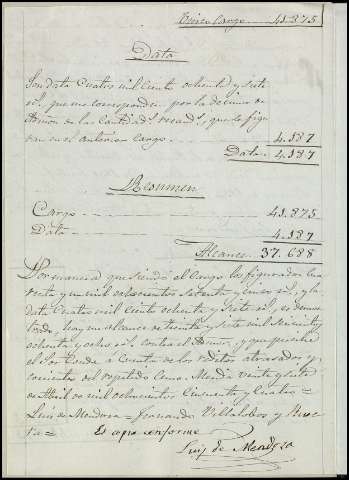 Unico Cargo 41.875
Data
Son data cuatro mil ciento ochenta y siete
r.s, que me corresponden por la decima de
de las cantidad.s recaud.s, que se figu
ran en el anterior cargo. 4.187
Data. 4.187
Resumen
Cargo 41.875
Data 4.187
Alcance. 37.688
Por manera que siendo el cargo los figurados cua
renta y un mil ochocientos setenta y cinco r.s, y la
data cuatro mil ciento ochenta y siete r.s, es demos
trado, hay un alcance de treinta y siete mil seiscientos
ochenta y ocho r.s contra el y que percibe
el Sor Conde á cuenta de los reditos atrasados y
corriente del repetido Censo. Mérida veinte y siete
de Abril de mil ochocientos cincuenta y cuatro =
Luis de Mendoza = Fernando Villalobos y
ta =
Es copia conforme
Luis de Mendoza